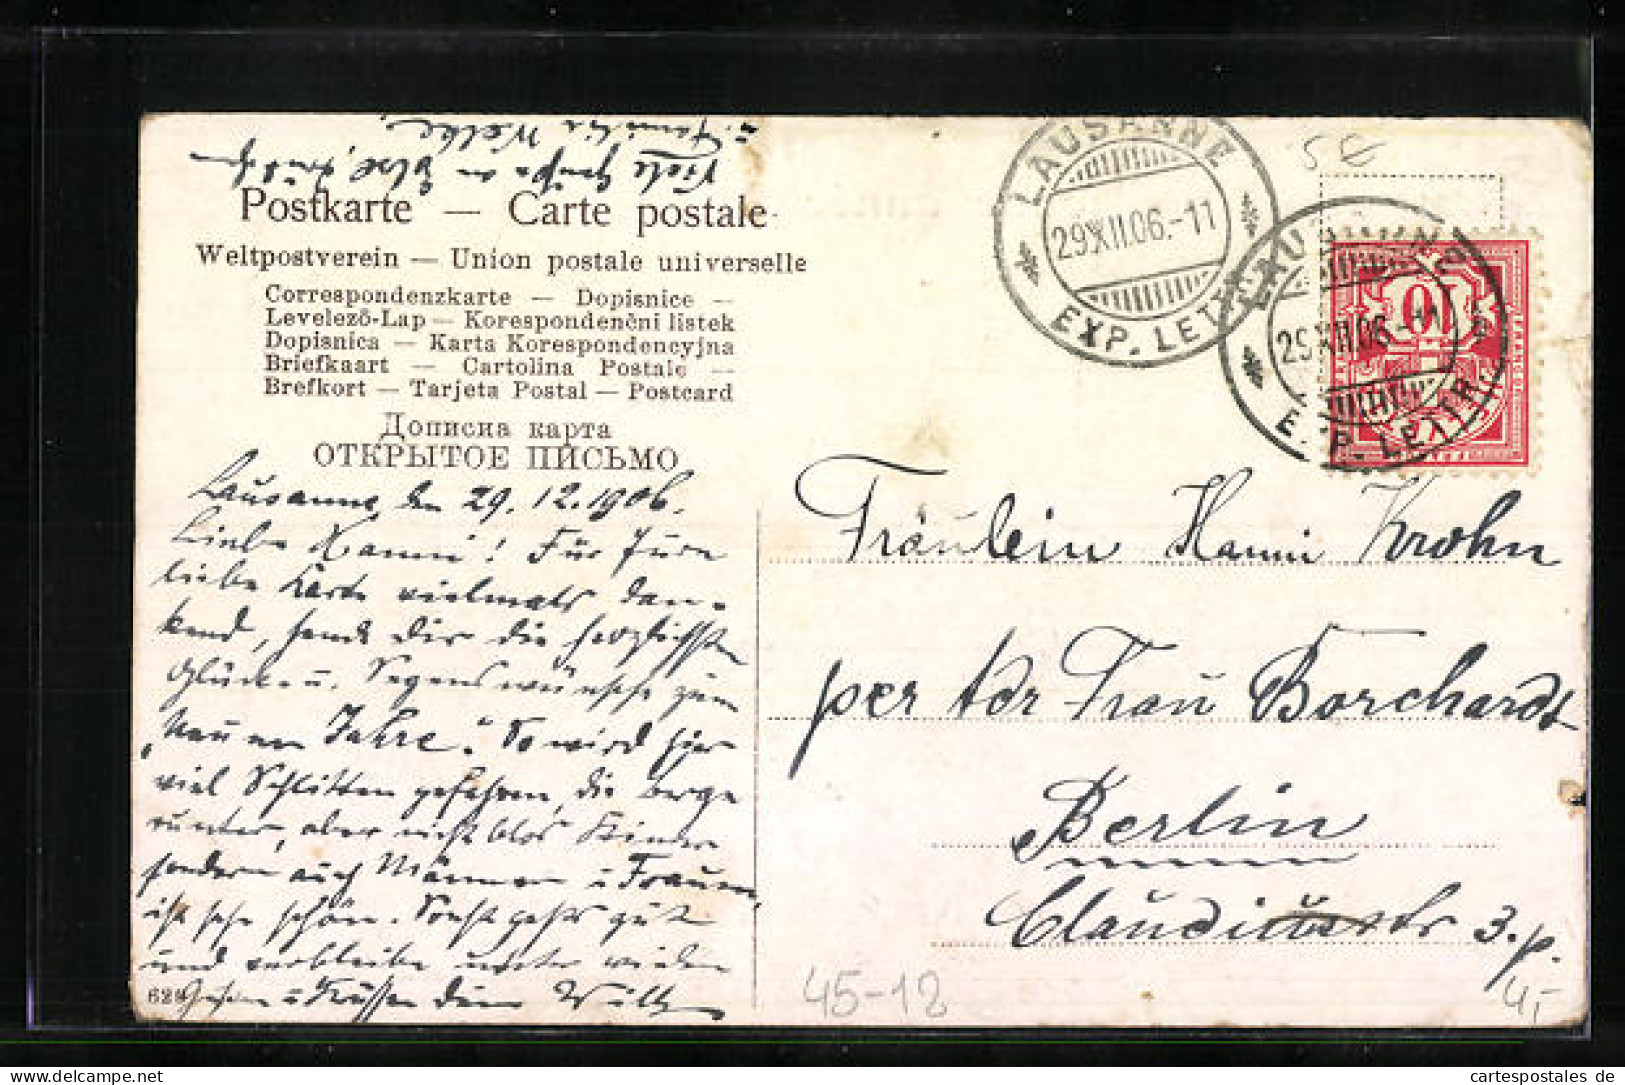 ü. Familie Welke,
Viele Grüße an
Postkarte — Carte postale
Weltpostverein — Union postale universelle
Correspondenzkarte — Dopisnice —
Levelező-Lap — Korespondenční listek
Dopisnica — Karta Korespondencyjna
Briefkaart — Cartolina Postale —
Brefkort — Tarjeta Postal — Postcard
Дописна карта
ОТКРЫТОЕ ПИСЬМО
Lausanne, den 29.12.1906.
Liebe Hanni! Für Eure
liebe Karte vielmals dan-
kend, sende Dir die herzlichsten
Glück- u. Segenswünsche zum
"Neuen Jahre". Es wird hier
viel Schlitten gefahren, die Berge
runter, aber nicht blos Kinder
sondern auch Männer u. Frauen,
ist sehr schön. Sonst geht's gut
und verbleibe unter vielen
Grüßen u. Küssen Dein Willy
LAUSANNE
29.XII.06.-11
EXP. LETTR.
LAUSANNE
29.XII.06.-11
EXP. LETTR.
10
Fräulein Hanni Krohn
per Adr Frau Borchardt
Berlin
Claudiusstr 3. p.
45-12
4,-
cartespostales de